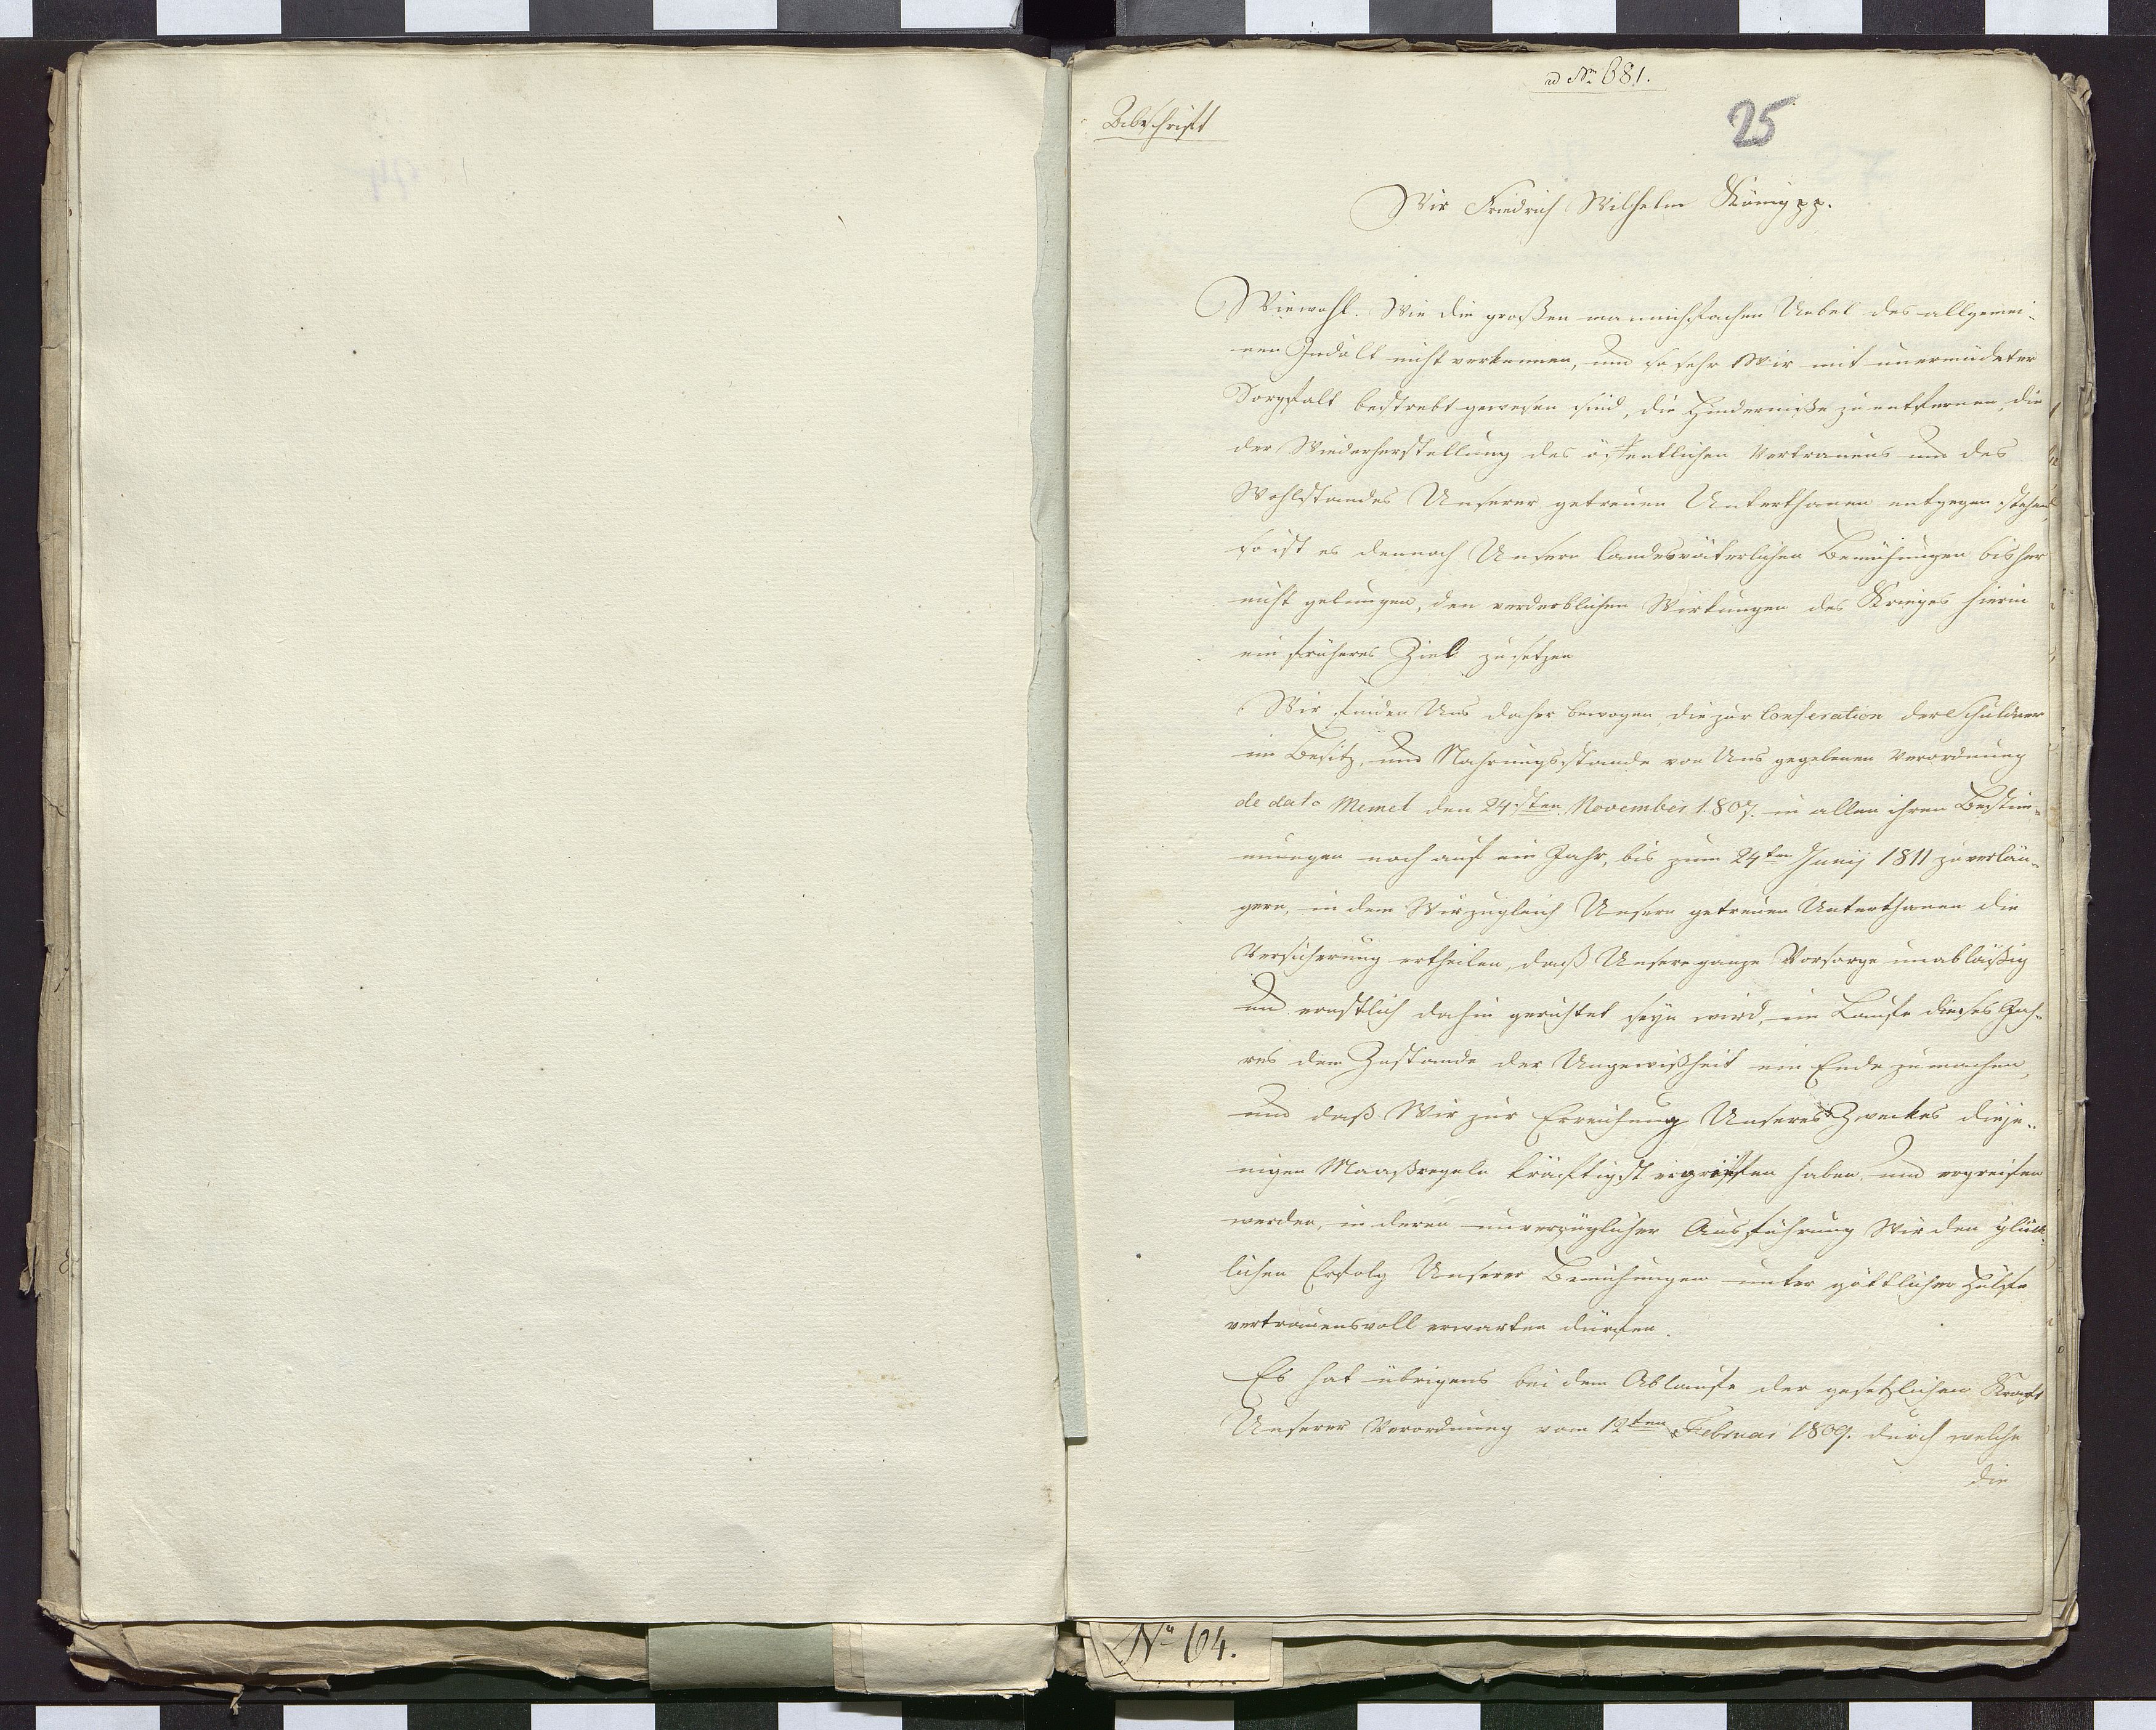 ad No 681.
25
Abschrift
Wir Friedrich Wilhelm König pp.
Wiewohl Wir die großen mannichfachen Uebel des allgemei-
nen Indults nicht verkennen, und so sehr Wir mit unermüdeter
Sorgfalt bestrebt gewesen sind, die Hinderniße zu entfernen, die
der Wiederherstellung des öffentlichen Vertrauens und des
Wohlstandes Unserer getreuen Unterthanen entgegen stehen,
so ist es dennoch Unsern landesväterlichen Bemühungen bisher
nicht gelungen, den verderblichen Wirkungen des Krieges hierin
ein früheres Ziel zu setzen
Wir finden Uns daher bewogen, die zur Conservation der Schuldner
im Besitz, und Nahrungsstande von Uns gegebenen Verordnung
de dato Memel den 24sten November 1807. in allen ihren Bestim-
mungen noch auf ein Jahr, bis zum 24ten Junij 1811 zu verlän-
gern, in dem Wir zugleich Unsern getreuen Unterthanen die
Versicherung ertheilen, daß Unsere ganze Vorsorge unabläßig
und ernstlich dahin gerichtet seyn wird, im Laufe dieses Jah-
res dem Zustande der Ungewißheit ein Ende zu machen,
und daß Wir zur Erreichung Unseres Zweckes dieje-
nigen Maaßregeln kräftigst ergriffen haben und ergreifen
werden, in deren unverzüglicher Ausführung Wir den glück-
lichen Erfolg Unserer Bemühungen unter göttlicher Hülfe
vertrauensvoll erwarten dürfen.
Es hat übrigens bei dem Ablaufe der gesetzlichen Kraft
Unserer Verordnung vom 12ten Februar 1809. durch welche
die
No 64.